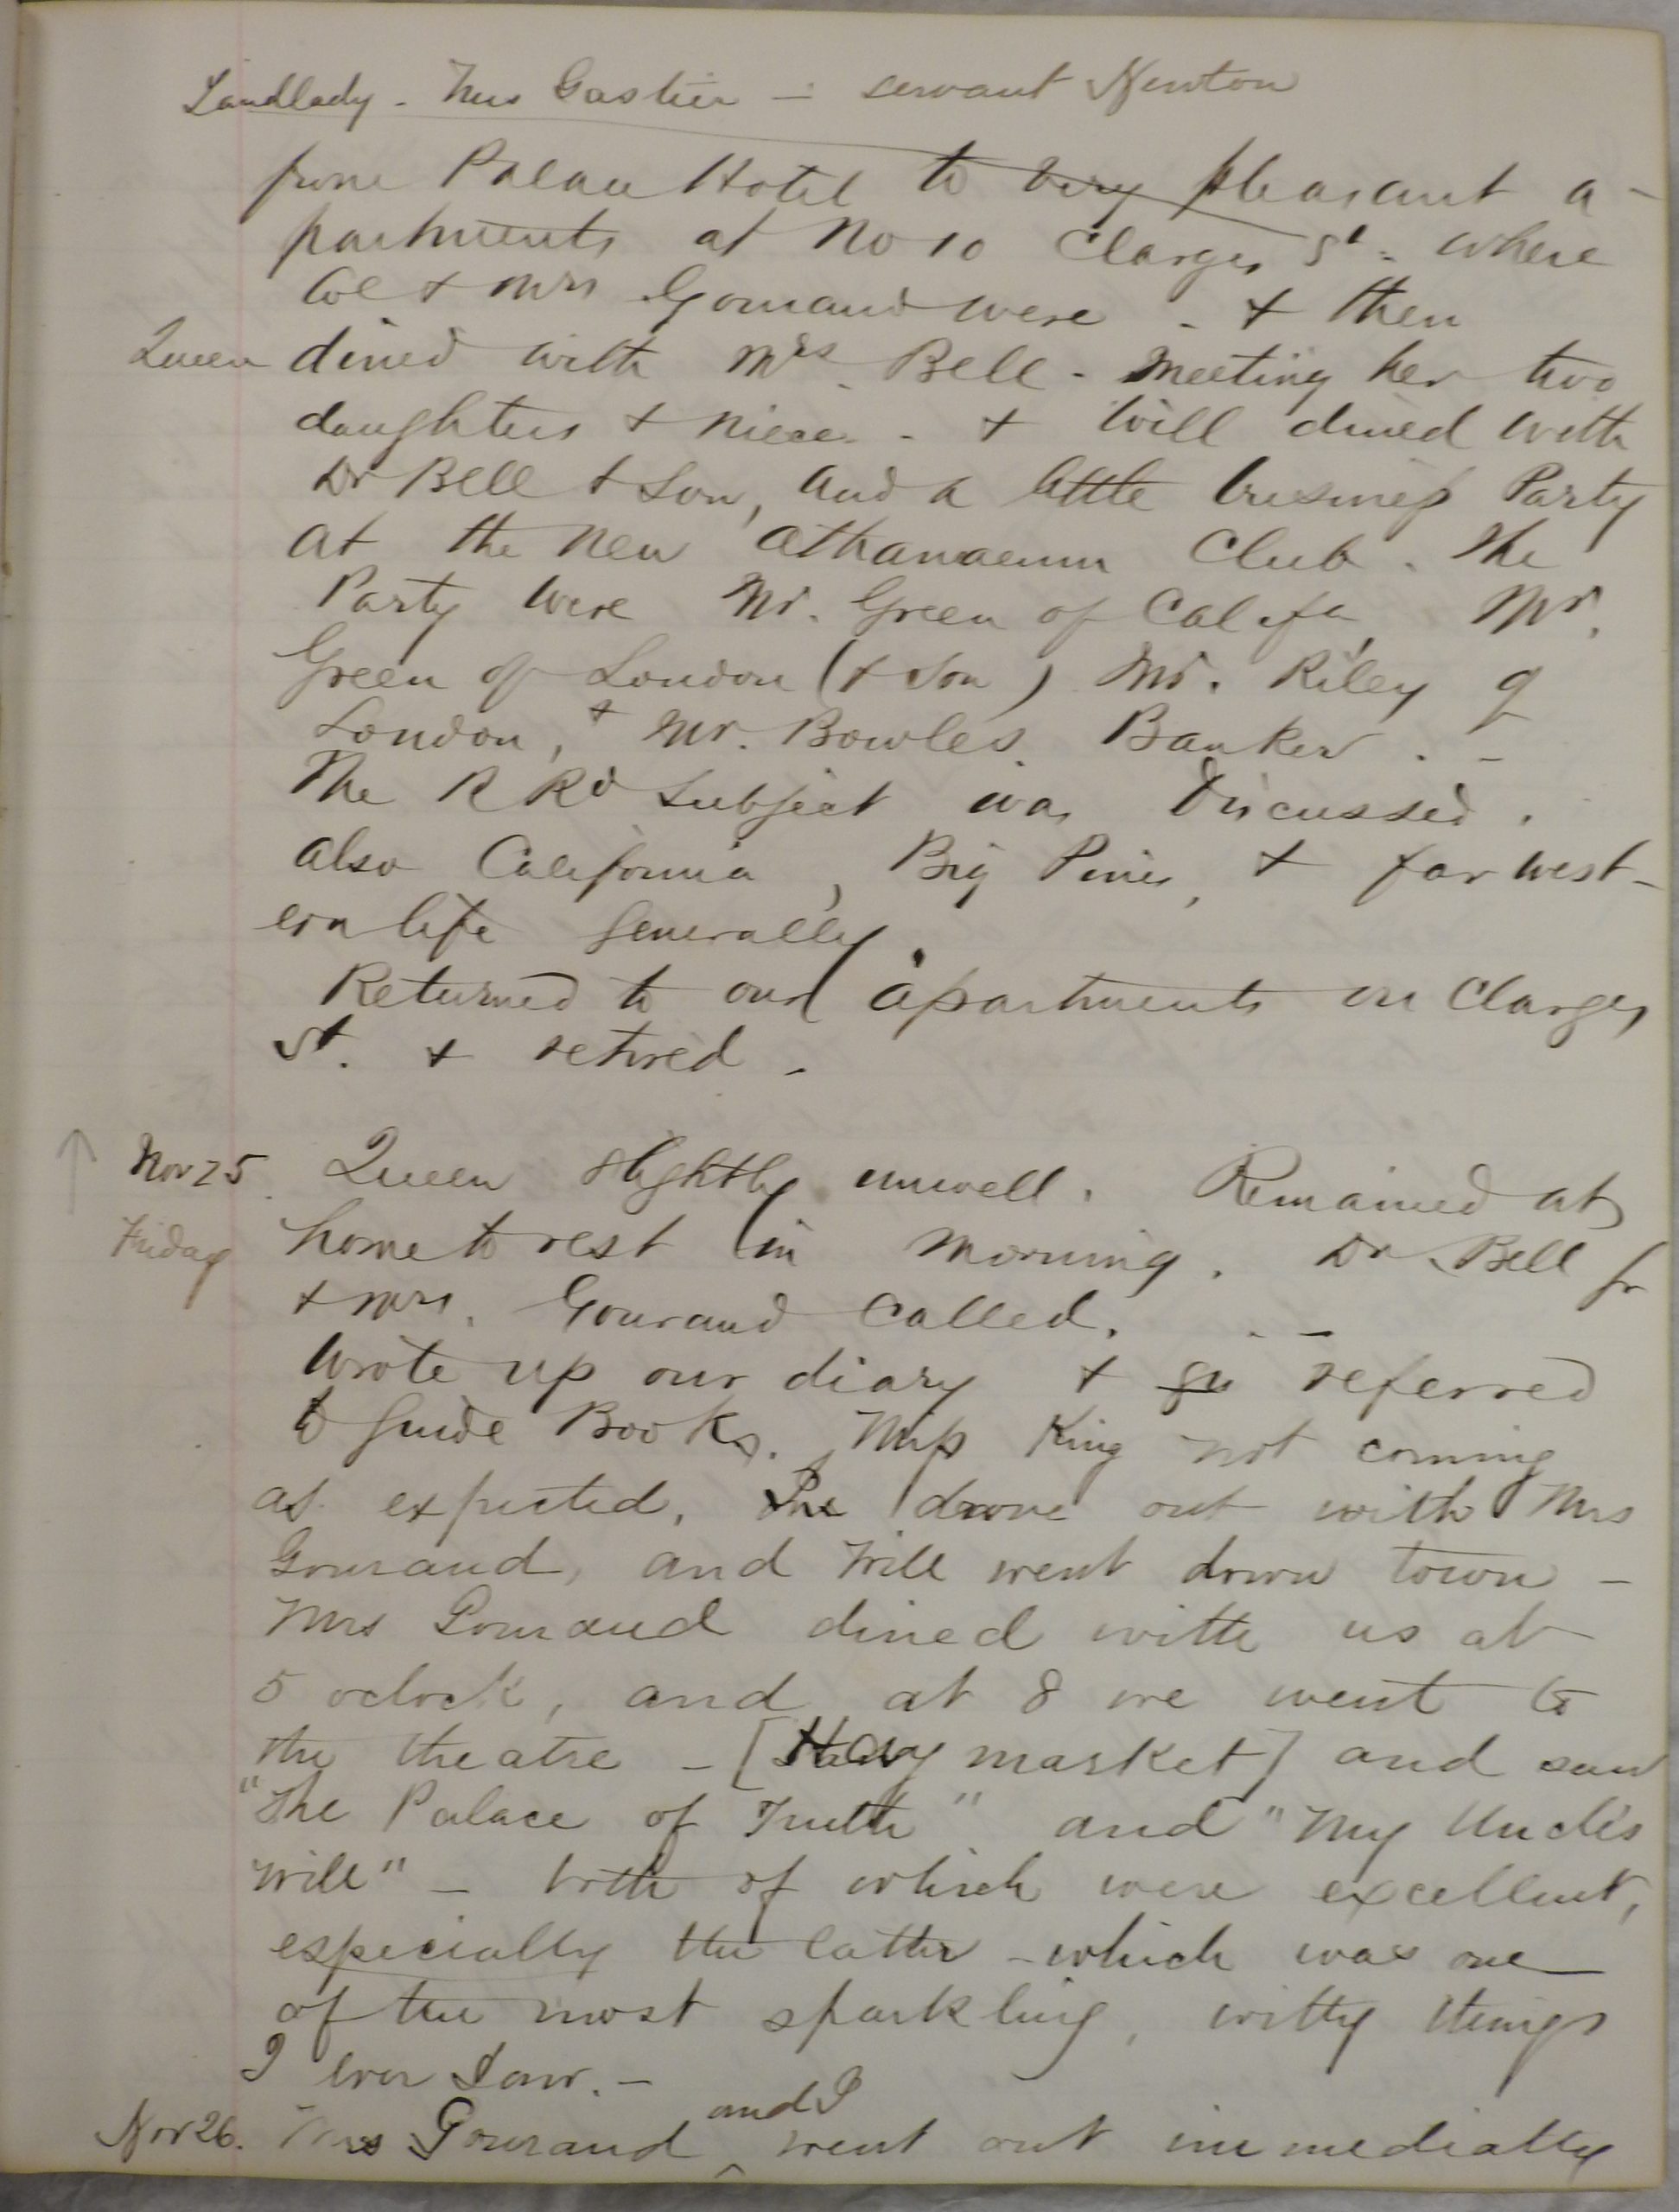 Landlady - Mrs Gastier - servant Newton
from Palace Hotel to very pleasant a-
partments at No 10 Clarges St. where
Col + Mrs Gouraud were - + then
Queen dined with Mrs. Bell - meeting her two
daughters + niece - + Will dined with
Dr Bell + Son, and a little business Party
at the new Athanaeum Club. The
Party were Mr. Green of Califa, Mr.
Green of London (+ Son) Mr. Riley of
London, + Mr. Bowles. Banker. -
The R Rd subject was discussed.
also California, Big Pines, + far west-
ern life generally.
Returned to our apartments on Clarges
St. + retired -
Nov 25. Queen slightly unwell. Remained at
Friday home to rest in morning. Dr. Bell Jr
+ Mrs. Gouraud called. -
Wrote up our diary + gu referred
to Guide Books. Miss King not coming
as expected, drove out with Mrs
Gouraud, and Will went down town -
Mrs Gouraud dined with us at
5 oclock, and at 8 we went to
the theatre - [Haymarket] and saw
"The Palace of Truth" and "My Uncle's
Will" - both of which were excellent,
especially the latter - which was one
of the most sparkling, witty things
I ever saw. -
Nov 26. Mrs Gouraud and I went out immediatly